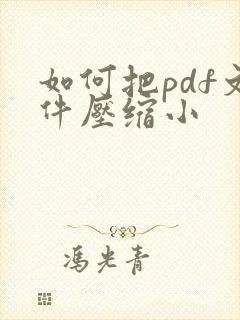 如何把pdf文
件壓缩小
馮光青